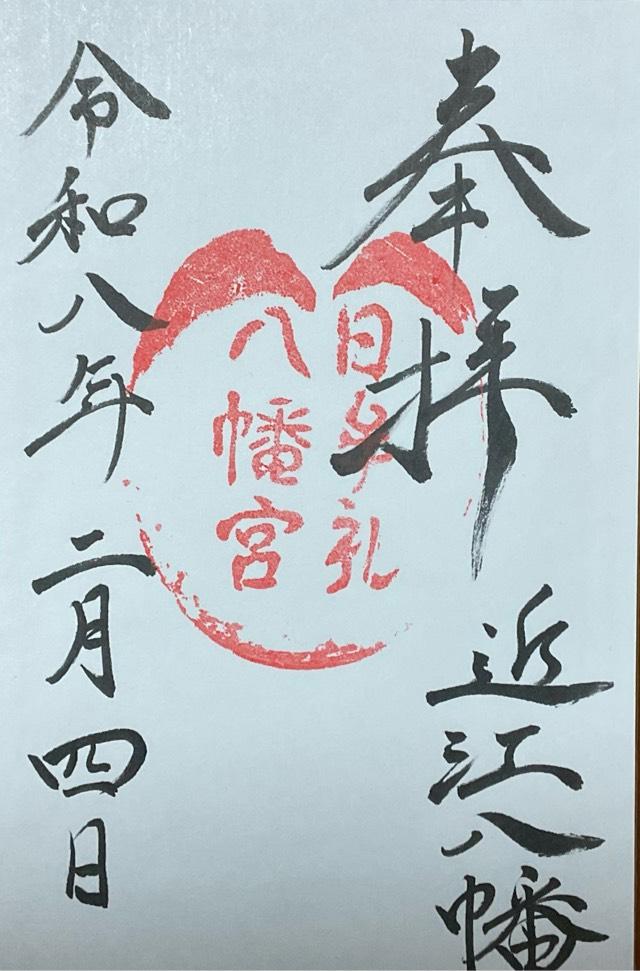 奉拝
近江八幡
日牟礼
八幡宮
令和八年 二月四日